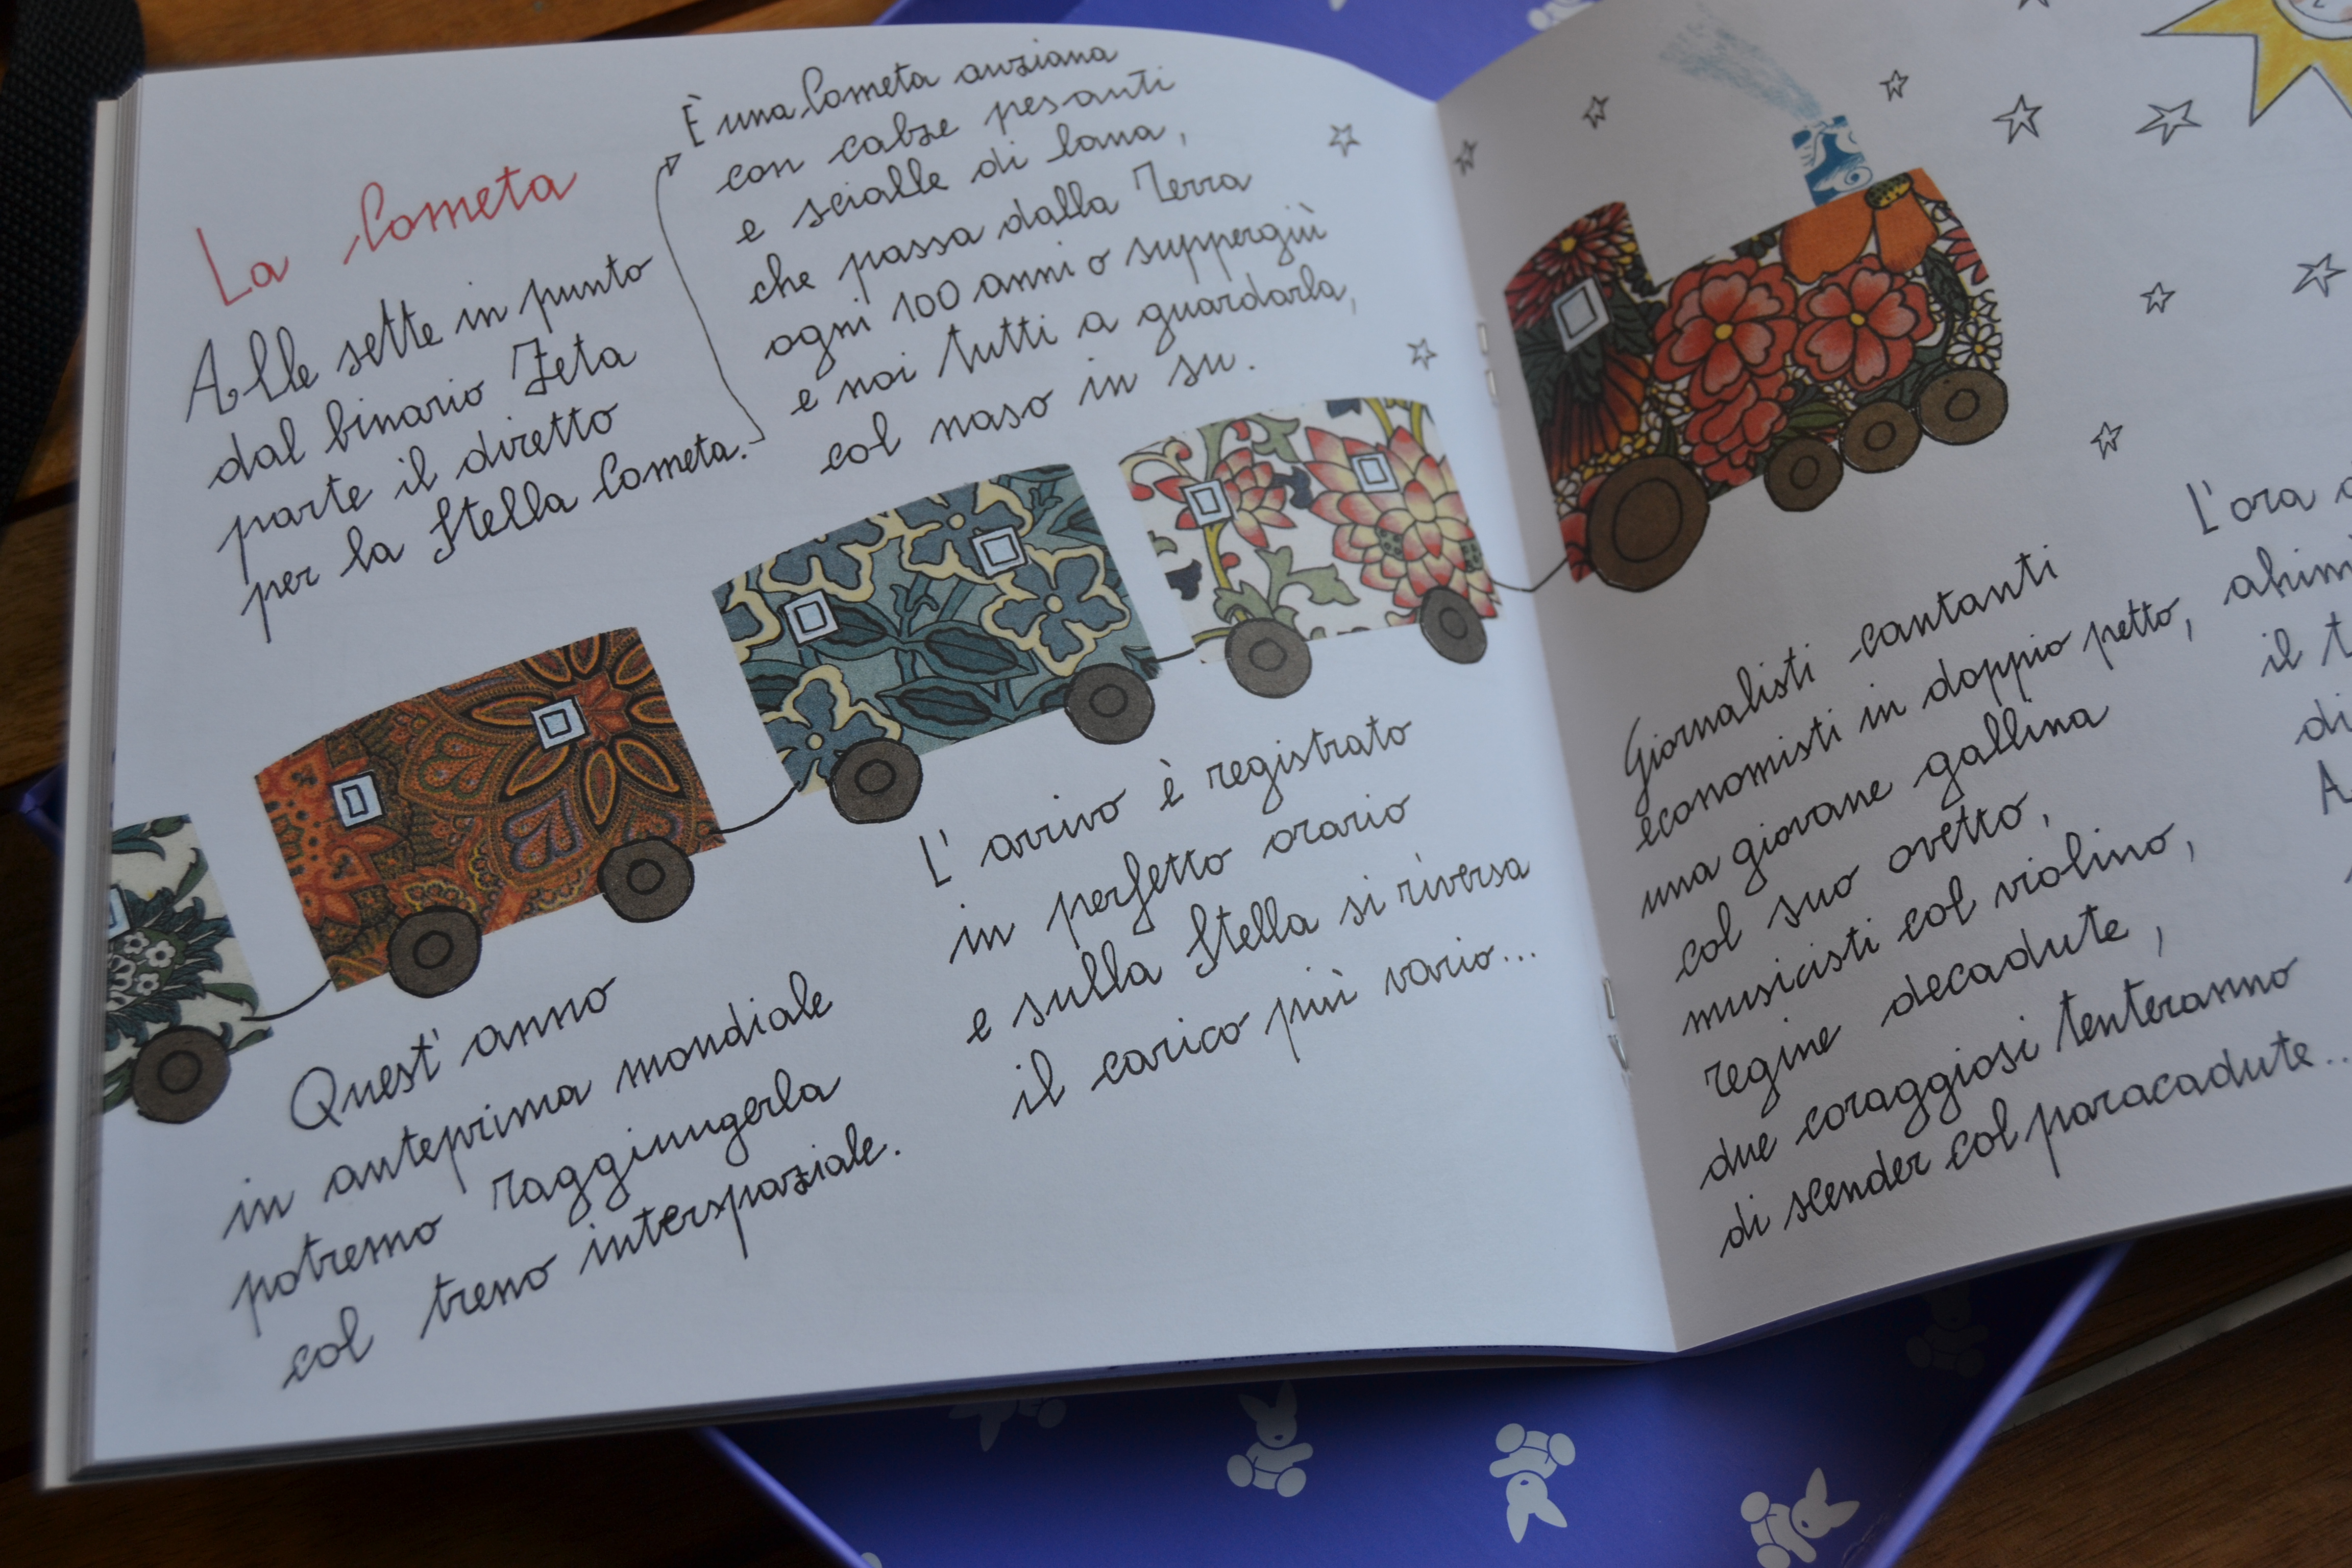 La Cometa
Alle sette in punto
dal binario Zeta
parte il diretto
per la Stella Cometa.
È una Cometa anziana
con calze pesanti
e scialle di lana,
che passa dalla Terra
ogni 100 anni o suppergiù
e noi tutti a guardarla,
col naso in su.
Quest'anno
in anteprima mondiale
potremo raggiungerla
col treno interspaziale.
L'arrivo è registrato
in perfetto orario
e sulla Stella si riversa
il carico più vario...
Giornalisti cantanti
economisti in doppio petto,
una giovane gallina
col suo ovetto,
musicisti col violino,
regine decadute,
due coraggiosi tenteranno
di scender col paracadute...
L'ora
il
di